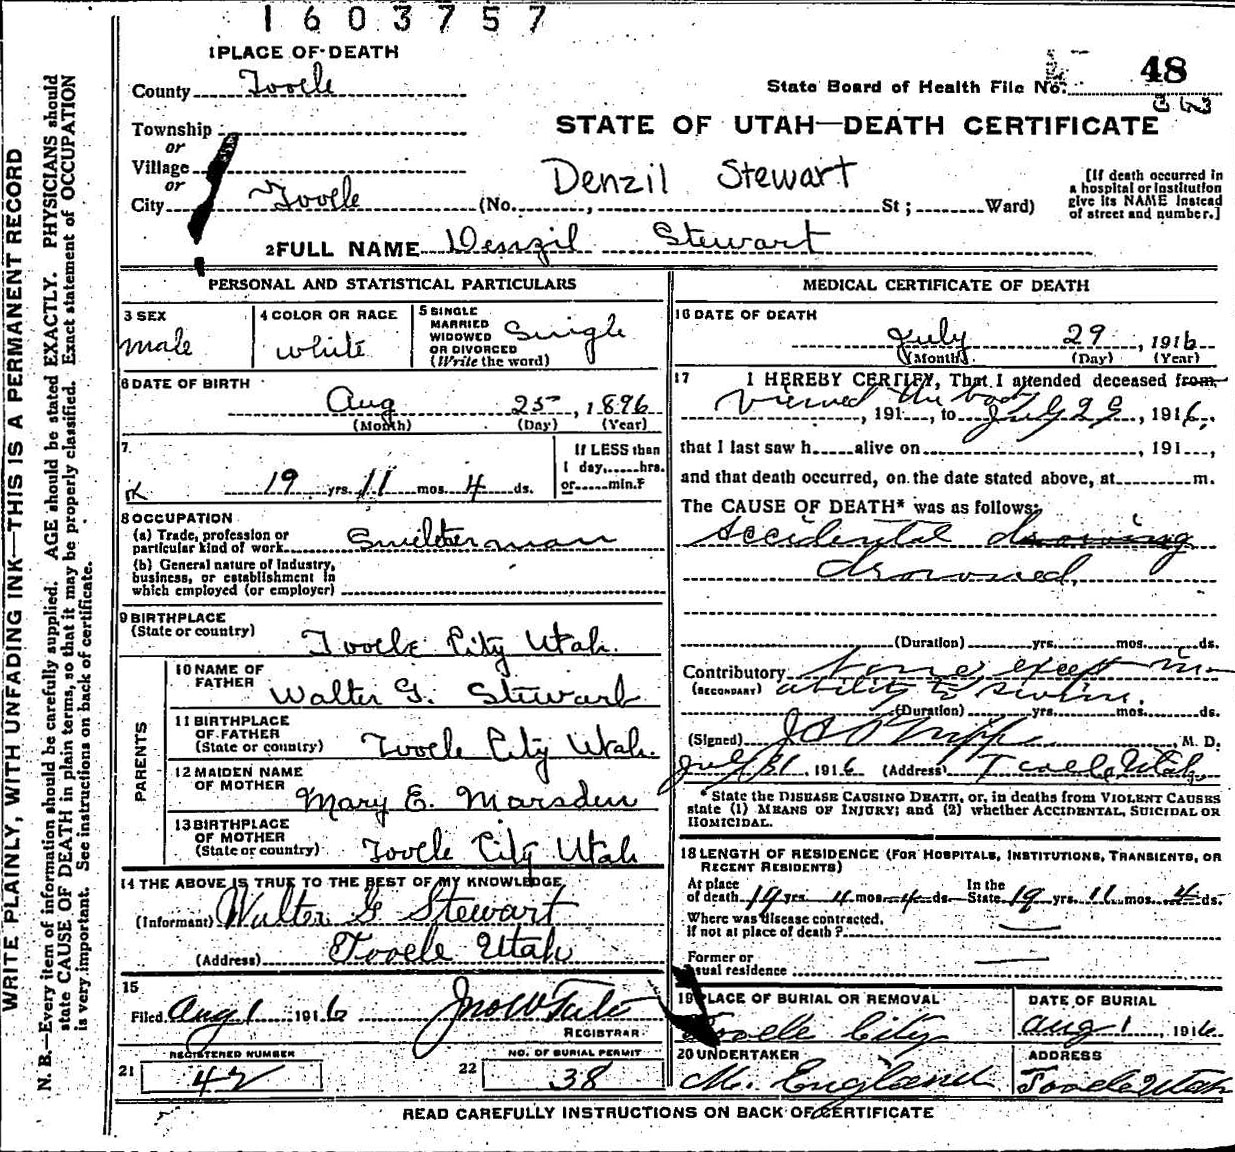 1603757
1 PLACE OF DEATH
County Tooele
State Board of Health File No. 48
Township
or
STATE OF UTAH—DEATH CERTIFICATE
Village
or
Denzil Stewart
City Tooele (No. , St ; Ward)
[If death occurred in
a hospital or institution
give its NAME instead
of street and number.]
2 FULL NAME Denzil Stewart
PERSONAL AND STATISTICAL PARTICULARS
3 SEX
male
4 COLOR OR RACE
white
5 SINGLE
MARRIED
WIDOWED
OR DIVORCED
(Write the word)
Single
6 DATE OF BIRTH
Aug 25, 1896
(Month) (Day) (Year)
7.
19 yrs. 11 mos. 4 ds.
If LESS than
1 day, hrs.
or min.?
8 OCCUPATION
(a) Trade, profession or
particular kind of work Smelterman
(b) General nature of Industry,
business, or establishment in
which employed (or employer)
9 BIRTHPLACE
(State or country) Tooele City Utah.
PARENTS
10 NAME OF
FATHER
Walter G. Stewart
11 BIRTHPLACE
OF FATHER
(State or country) Tooele City Utah.
12 MAIDEN NAME
OF MOTHER
Mary E. Marsden
13 BIRTHPLACE
OF MOTHER
(State or country) Tooele City Utah
14 THE ABOVE IS TRUE TO THE BEST OF MY KNOWLEDGE
(Informant) Walter G Stewart
(Address) Tooele Utah
15
Filed Aug 1 1916 Jno W Tate
REGISTRAR
21 REGISTERED NUMBER
42
22 NO. OF BURIAL PERMIT
38
MEDICAL CERTIFICATE OF DEATH
16 DATE OF DEATH
July 29, 1916
(Month) (Day) (Year)
17 I HEREBY CERTIFY, That I attended deceased from
Viewed the body
, 191 , to July 29, 1916,
that I last saw h alive on , 191 ,
and that death occurred, on the date stated above, at m.
The CAUSE OF DEATH* was as follows:
Accidental drowning
drowned,
(Duration) yrs. mos. ds.
Contributory None except in-
(SECONDARY) ability to swim.
(Duration) yrs. mos. ds.
(Signed) M. D.
July 31 1916 (Address) Tooele, Utah
State the DISEASE CAUSING DEATH, or, in deaths from VIOLENT CAUSES
state (1) MEANS OF INJURY; and (2) whether ACCIDENTAL, SUICIDAL OR
HOMICIDAL.
18 LENGTH OF RESIDENCE (FOR HOSPITALS, INSTITUTIONS, TRANSIENTS, OR
RECENT RESIDENTS)
At place
of death 19 yrs. 11 mos. 4 ds.
In the
State 19 yrs. 11 mos. 4 ds.
Where was disease contracted.
If not at place of death?
Former or
usual residence
19 PLACE OF BURIAL OR REMOVAL
Tooele City
DATE OF BURIAL
Aug 1, 1916
20 UNDERTAKER
M. England
ADDRESS
Tooele Utah
READ CAREFULLY INSTRUCTIONS ON BACK OF CERTIFICATE
WRITE PLAINLY, WITH UNFADING INK—THIS IS A PERMANENT RECORD
N. B.—Every item of information should be carefully supplied. AGE should be stated EXACTLY. PHYSICIANS should
state CAUSE OF DEATH in plain terms, so that it may be properly classified. Exact statement of OCCUPATION
is very important. See instructions on back of certificate.